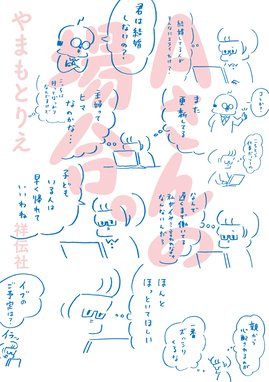 Aさんの
場合。
やまもとりえ
祥伝社
君は結婚
しないの？
また
更新してる
主婦って
ヒマ
なのかな…
なんで
遅くまで働いてる
なんないんだろ
子ども
いる人は
早く帰れて
いいわね
ほんと
ほっといてほしい
イブの
ご予定は？
親から
心配されるのが
一番
ズッシリ
くるな